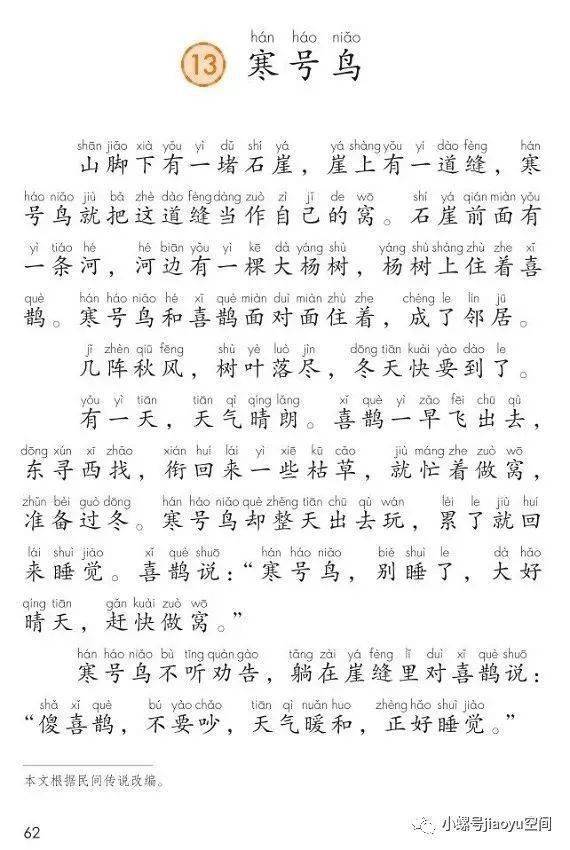 hán háo niǎo
13 寒号鸟
shān jiǎo xià yǒu yì dǔ shí yá yá shàng yǒu yí dào fèng hán
山脚下有一堵石崖，崖上有一道缝，寒
háo niǎo jiù bǎ zhè dào fèng dàng zuò zì jǐ de wō shí yá qián miàn yǒu
号鸟就把这道缝当作自己的窝。石崖前面有
yì tiáo hé hé biān yǒu yì kē dà yáng shù yáng shù shàng zhù zhe xǐ
一条河，河边有一棵大杨树，杨树上住着喜
què hán háo niǎo hé xǐ què miàn duì miàn zhù zhe chéng le lín jū
鹊。寒号鸟和喜鹊面对面住着，成了邻居。
jǐ zhèn qiū fēng shù yè luò jìn dōng tiān kuài yào dào le
几阵秋风，树叶落尽，冬天快要到了。
yǒu yì tiān tiān qì qíng lǎng xǐ què yì zǎo fēi chū qù
有一天，天气晴朗。喜鹊一早飞出去，
dōng xún xī zhǎo xián huí lái yì xiē kū cǎo jiù máng zhe zuò wō
东寻西找，衔回来一些枯草，就忙着做窝，
zhǔn bèi guò dōng hán háo niǎo què zhěng tiān chū qù wán lèi le jiù huí
准备过冬。寒号鸟却整天出去玩，累了就回
lái shuì jiào xǐ què shuō hán háo niǎo bié shuì le dà hǎo
来睡觉。喜鹊说：“寒号鸟，别睡了，大好
qíng tiān gǎn kuài zuò wō
晴天，赶快做窝。”
hán háo niǎo bù tīng quàn gào tǎng zài yá fèng lǐ duì xǐ què shuō
寒号鸟不听劝告，躺在崖缝里对喜鹊说：
shǎ xǐ què bú yào chǎo tiān qì nuǎn huo zhèng hǎo shuì jiào
“傻喜鹊，不要吵，天气暖和，正好睡觉。”
本文根据民间传说改编。
62
小螺号jiaoyu空间